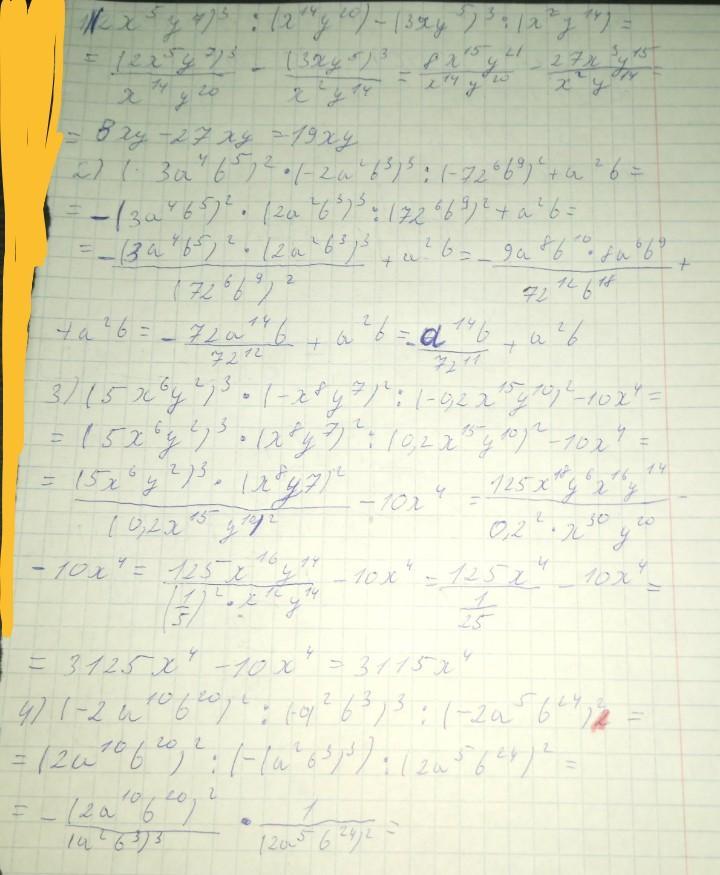 1) (2x⁵y⁷)³ : (x¹⁴y²⁰) - (3xy⁵)³ : (x²y¹⁴) =
= (2x⁵y⁷)³ / x¹⁴y²⁰ - (3xy⁵)³ / x²y¹⁴ = 8x¹⁵y²¹ / x¹⁴y²⁰ - 27x³y¹⁵ / x²y¹⁴ =
= 8xy - 27xy = -19xy
2) (3a⁴b⁵)² · (-2a²b³)³ : (-72⁶b⁹)² + a²b =
= -(3a⁴b⁵)² · (2a²b³)³ : (72⁶b⁹)² + a²b =
= -(3a⁴b⁵)² · (2a²b³)³ / (72⁶b⁹)² + a²b = - 9a⁸b¹⁰ · 8a⁶b⁹ / 72¹²b¹⁸ +
+ a²b = - 72a¹⁴b / 72¹² + a²b = - a¹⁴b / 72¹¹ + a²b
3) (5x⁶y²)³ · (-x⁸y⁷)² : (-0,2x¹⁵y¹⁰)² - 10x⁴ =
= (5x⁶y²)³ · (x⁸y⁷)² : (0,2x¹⁵y¹⁰)² - 10x⁴ =
= (5x⁶y²)³ · (x⁸y7)² / (0,2x¹⁵y¹⁰)² - 10x⁴ = 125x¹⁸y⁶x¹⁶y¹⁴ / 0,2² · x³⁰y²⁰ -
- 10x⁴ = 125x¹⁶y¹⁴ / (1/5)² · x¹²y¹⁴ - 10x⁴ = 125x⁴ / 1/25 - 10x⁴ =
= 3125x⁴ - 10x⁴ = 3115x⁴
4) (-2a¹⁰b²⁰)² : (-a²b³)³ : (-2a⁵b²⁴)² =
= (2a¹⁰b²⁰)² : (-(a²b³)³) : (2a⁵b²⁴)² =
= - (2a¹⁰b²⁰)² / (a²b³)³ · 1 / (2a⁵b²⁴)² =